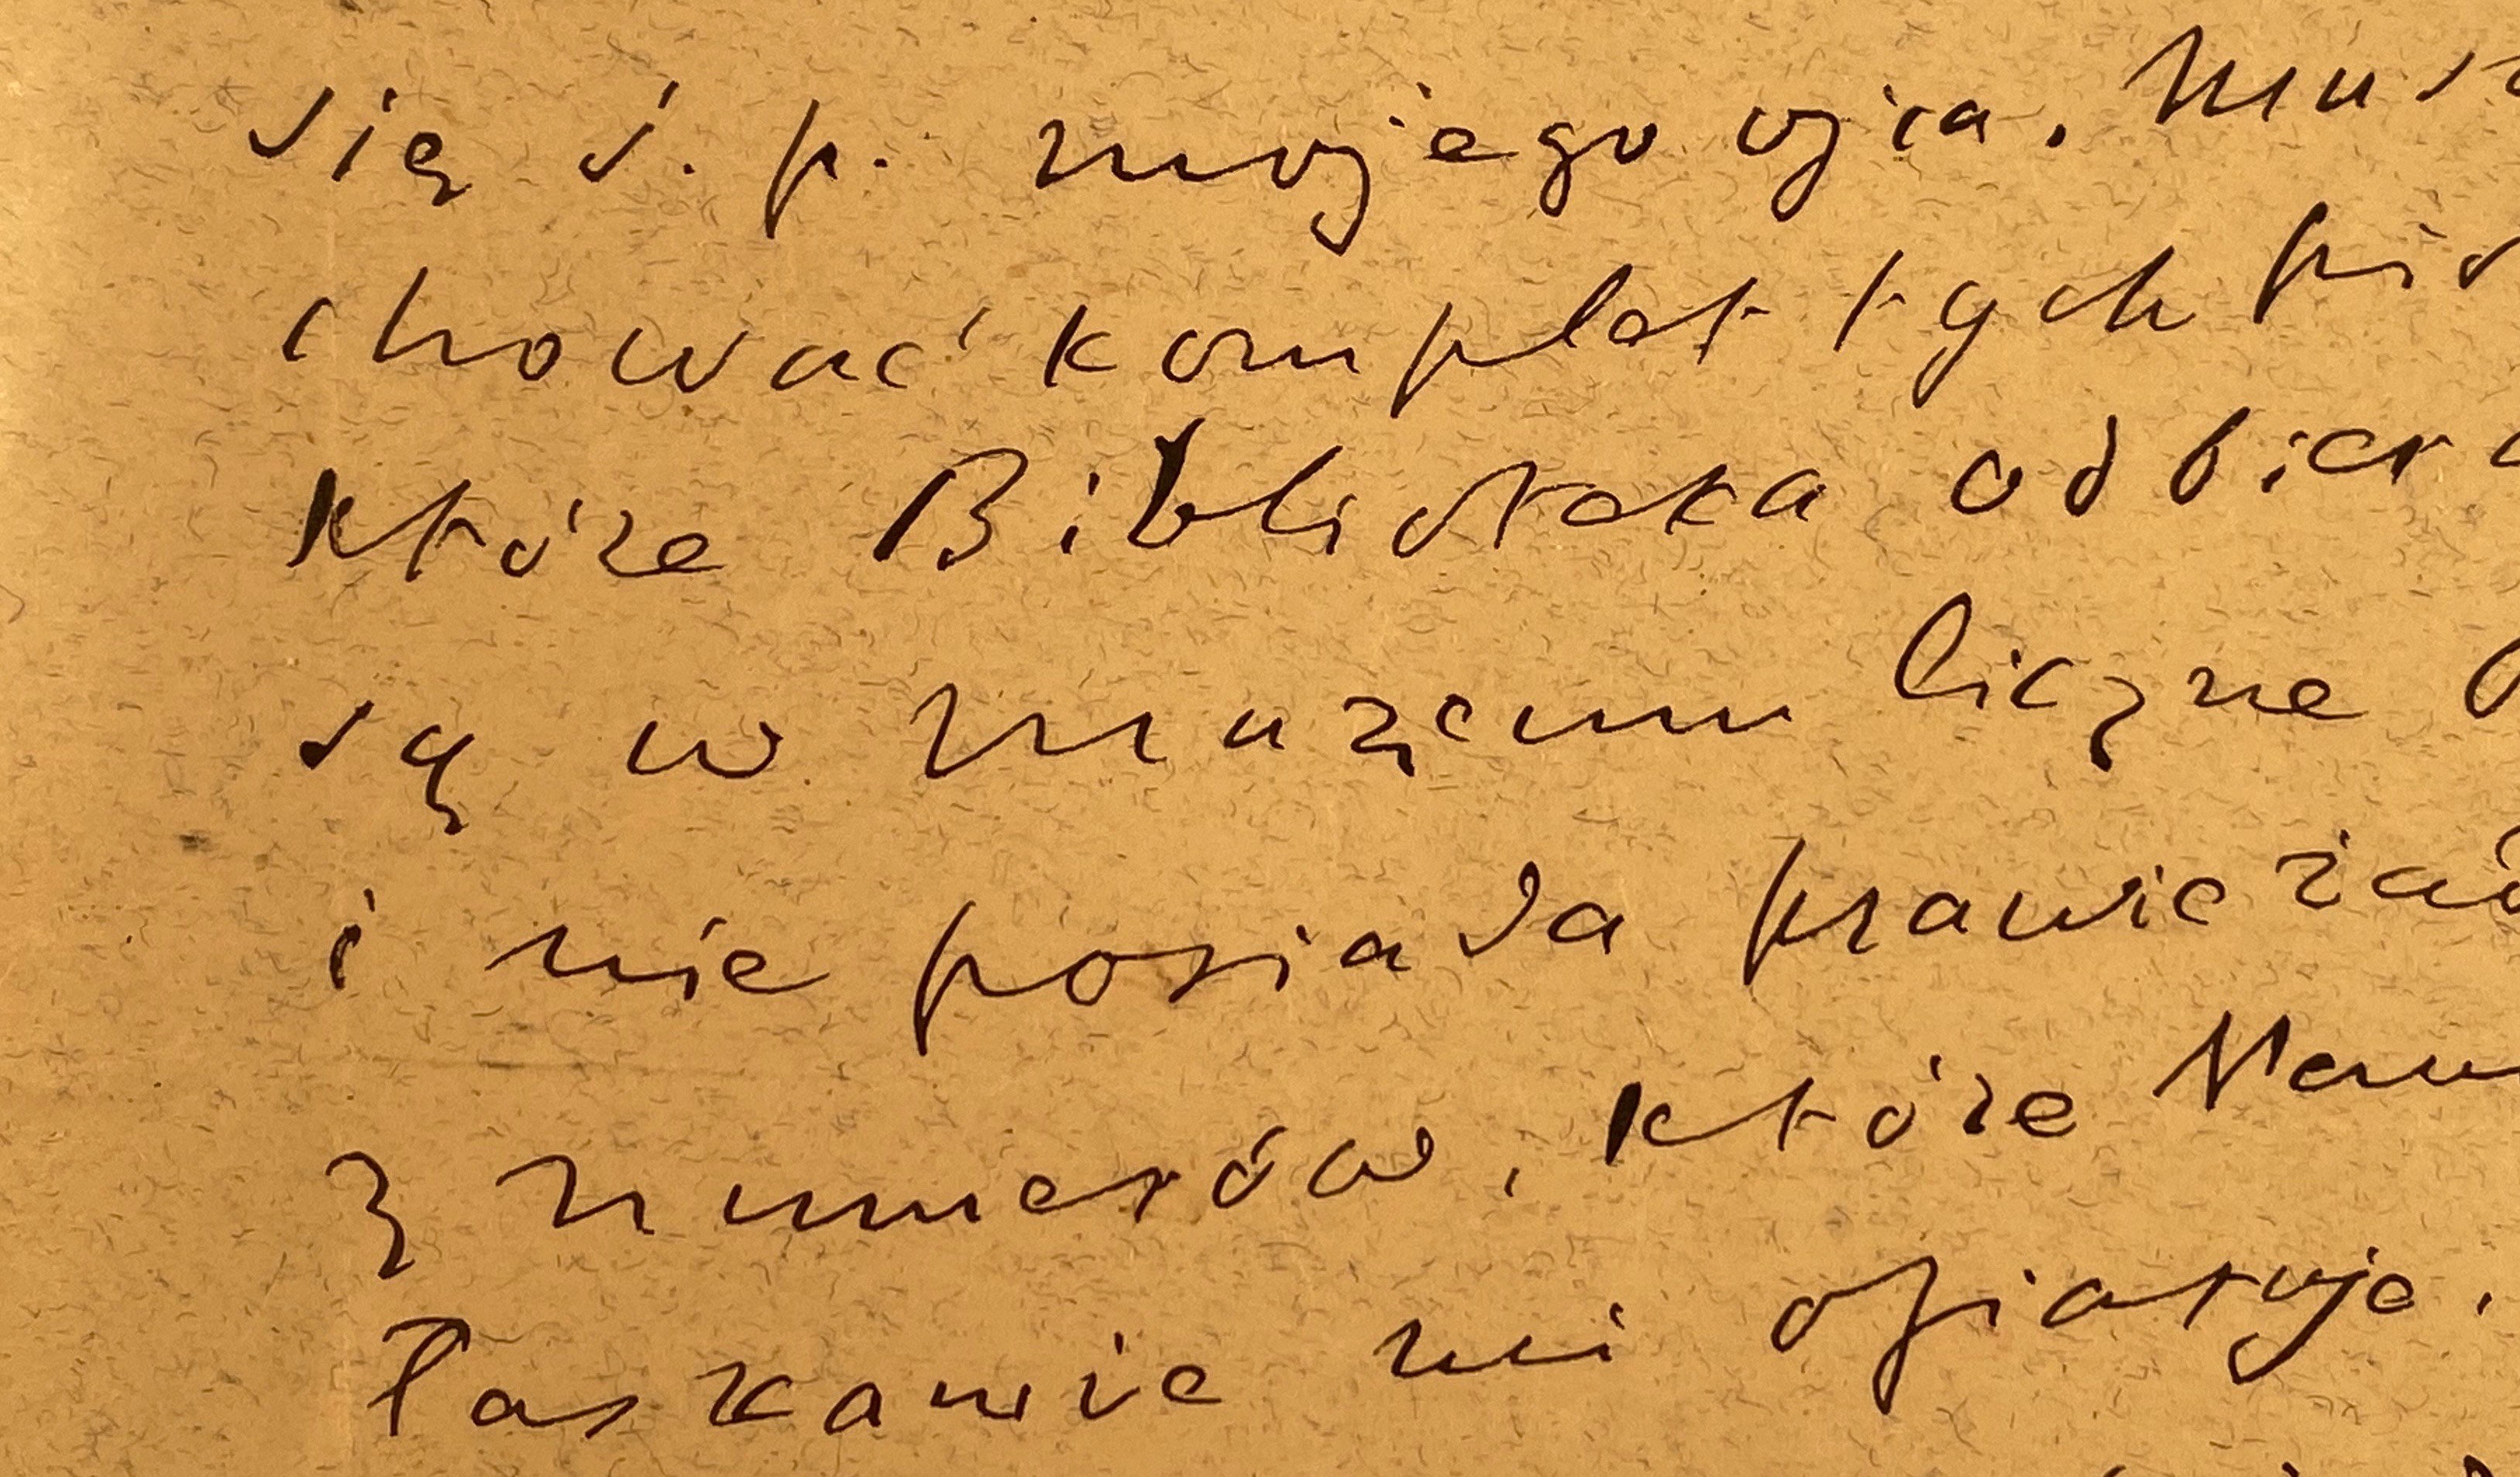 się ś. p. mojego ojca. Mus
chować komplet tych pis
które Biblioteka odbiera
są w muzeum liczne
i nie posiada prawie żad
z numerów, które Pan
łaskawie mi ofiaruje.